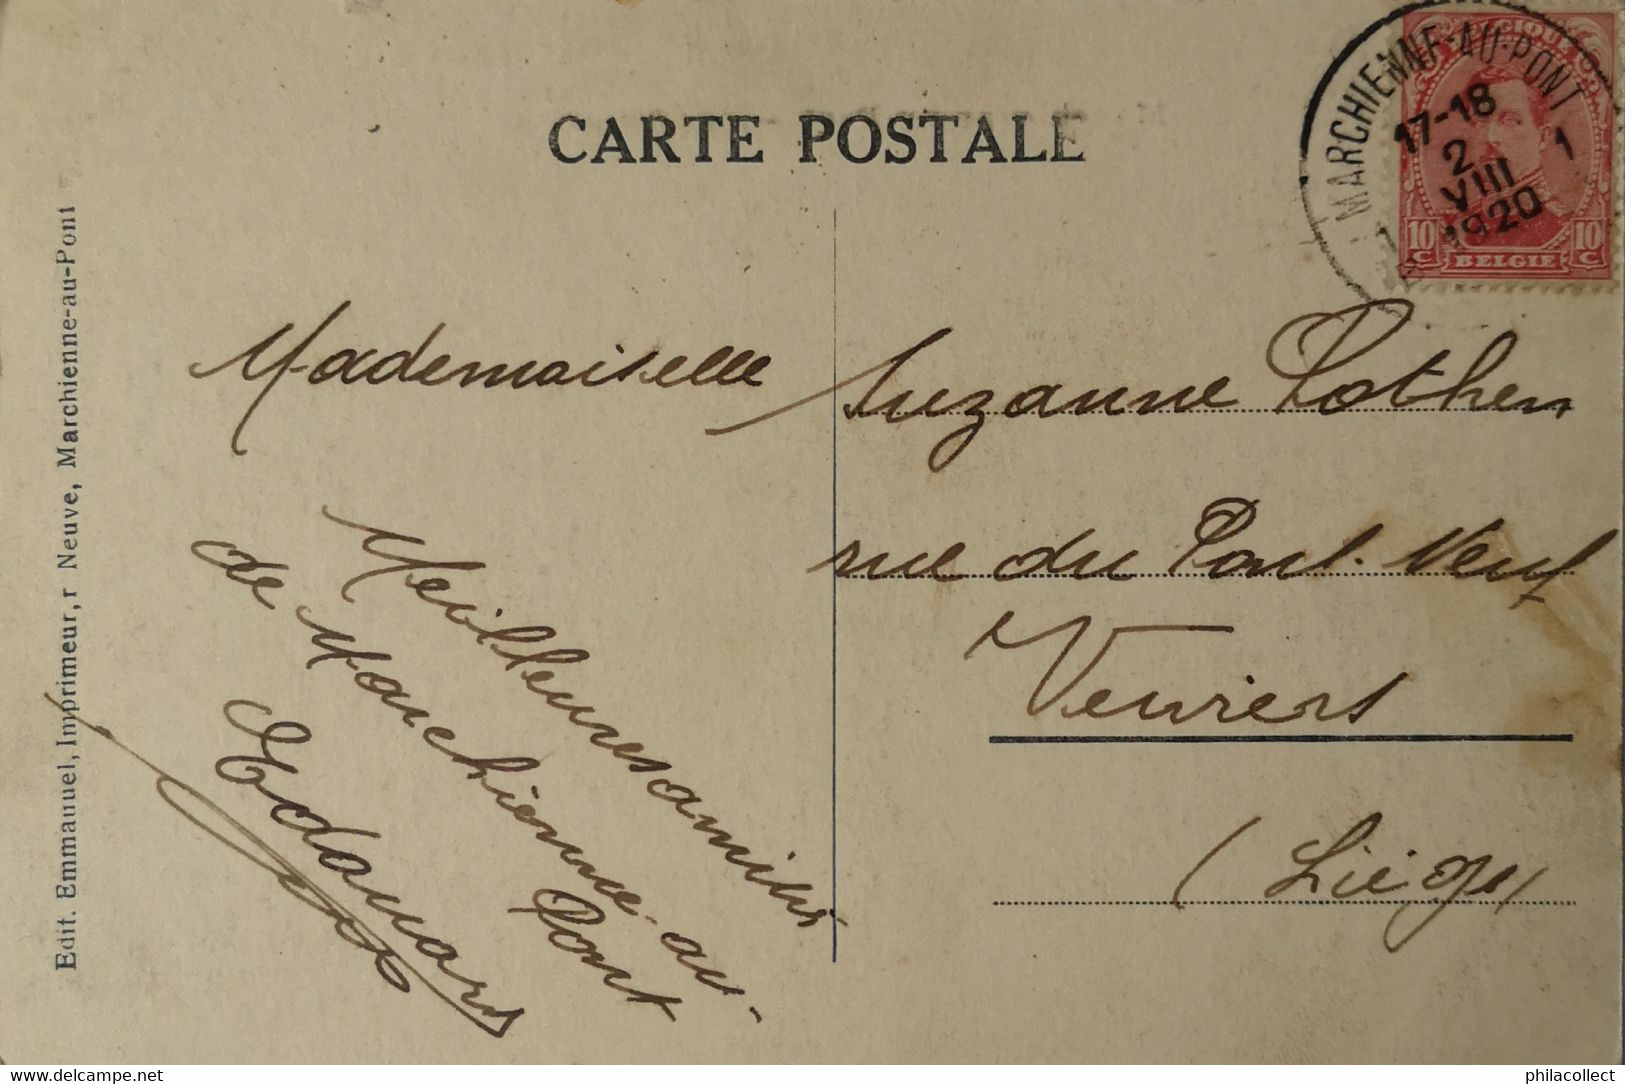 CARTE POSTALE
BELGIQUE
MARCHIENNE-AU-PONT
17-18
2
VIII
1920
1
1
10 C
BELGIE
10 C
Mademoiselle Suzanne Pothen
rue du Pont-Neuf
Verviers
(Liège)
Meilleures amitiés
de Marchienne-au-
Pont
Edouard
Edit. Emmanuel, Imprimeur, r Neuve, Marchienne-au-Pont
philacollect